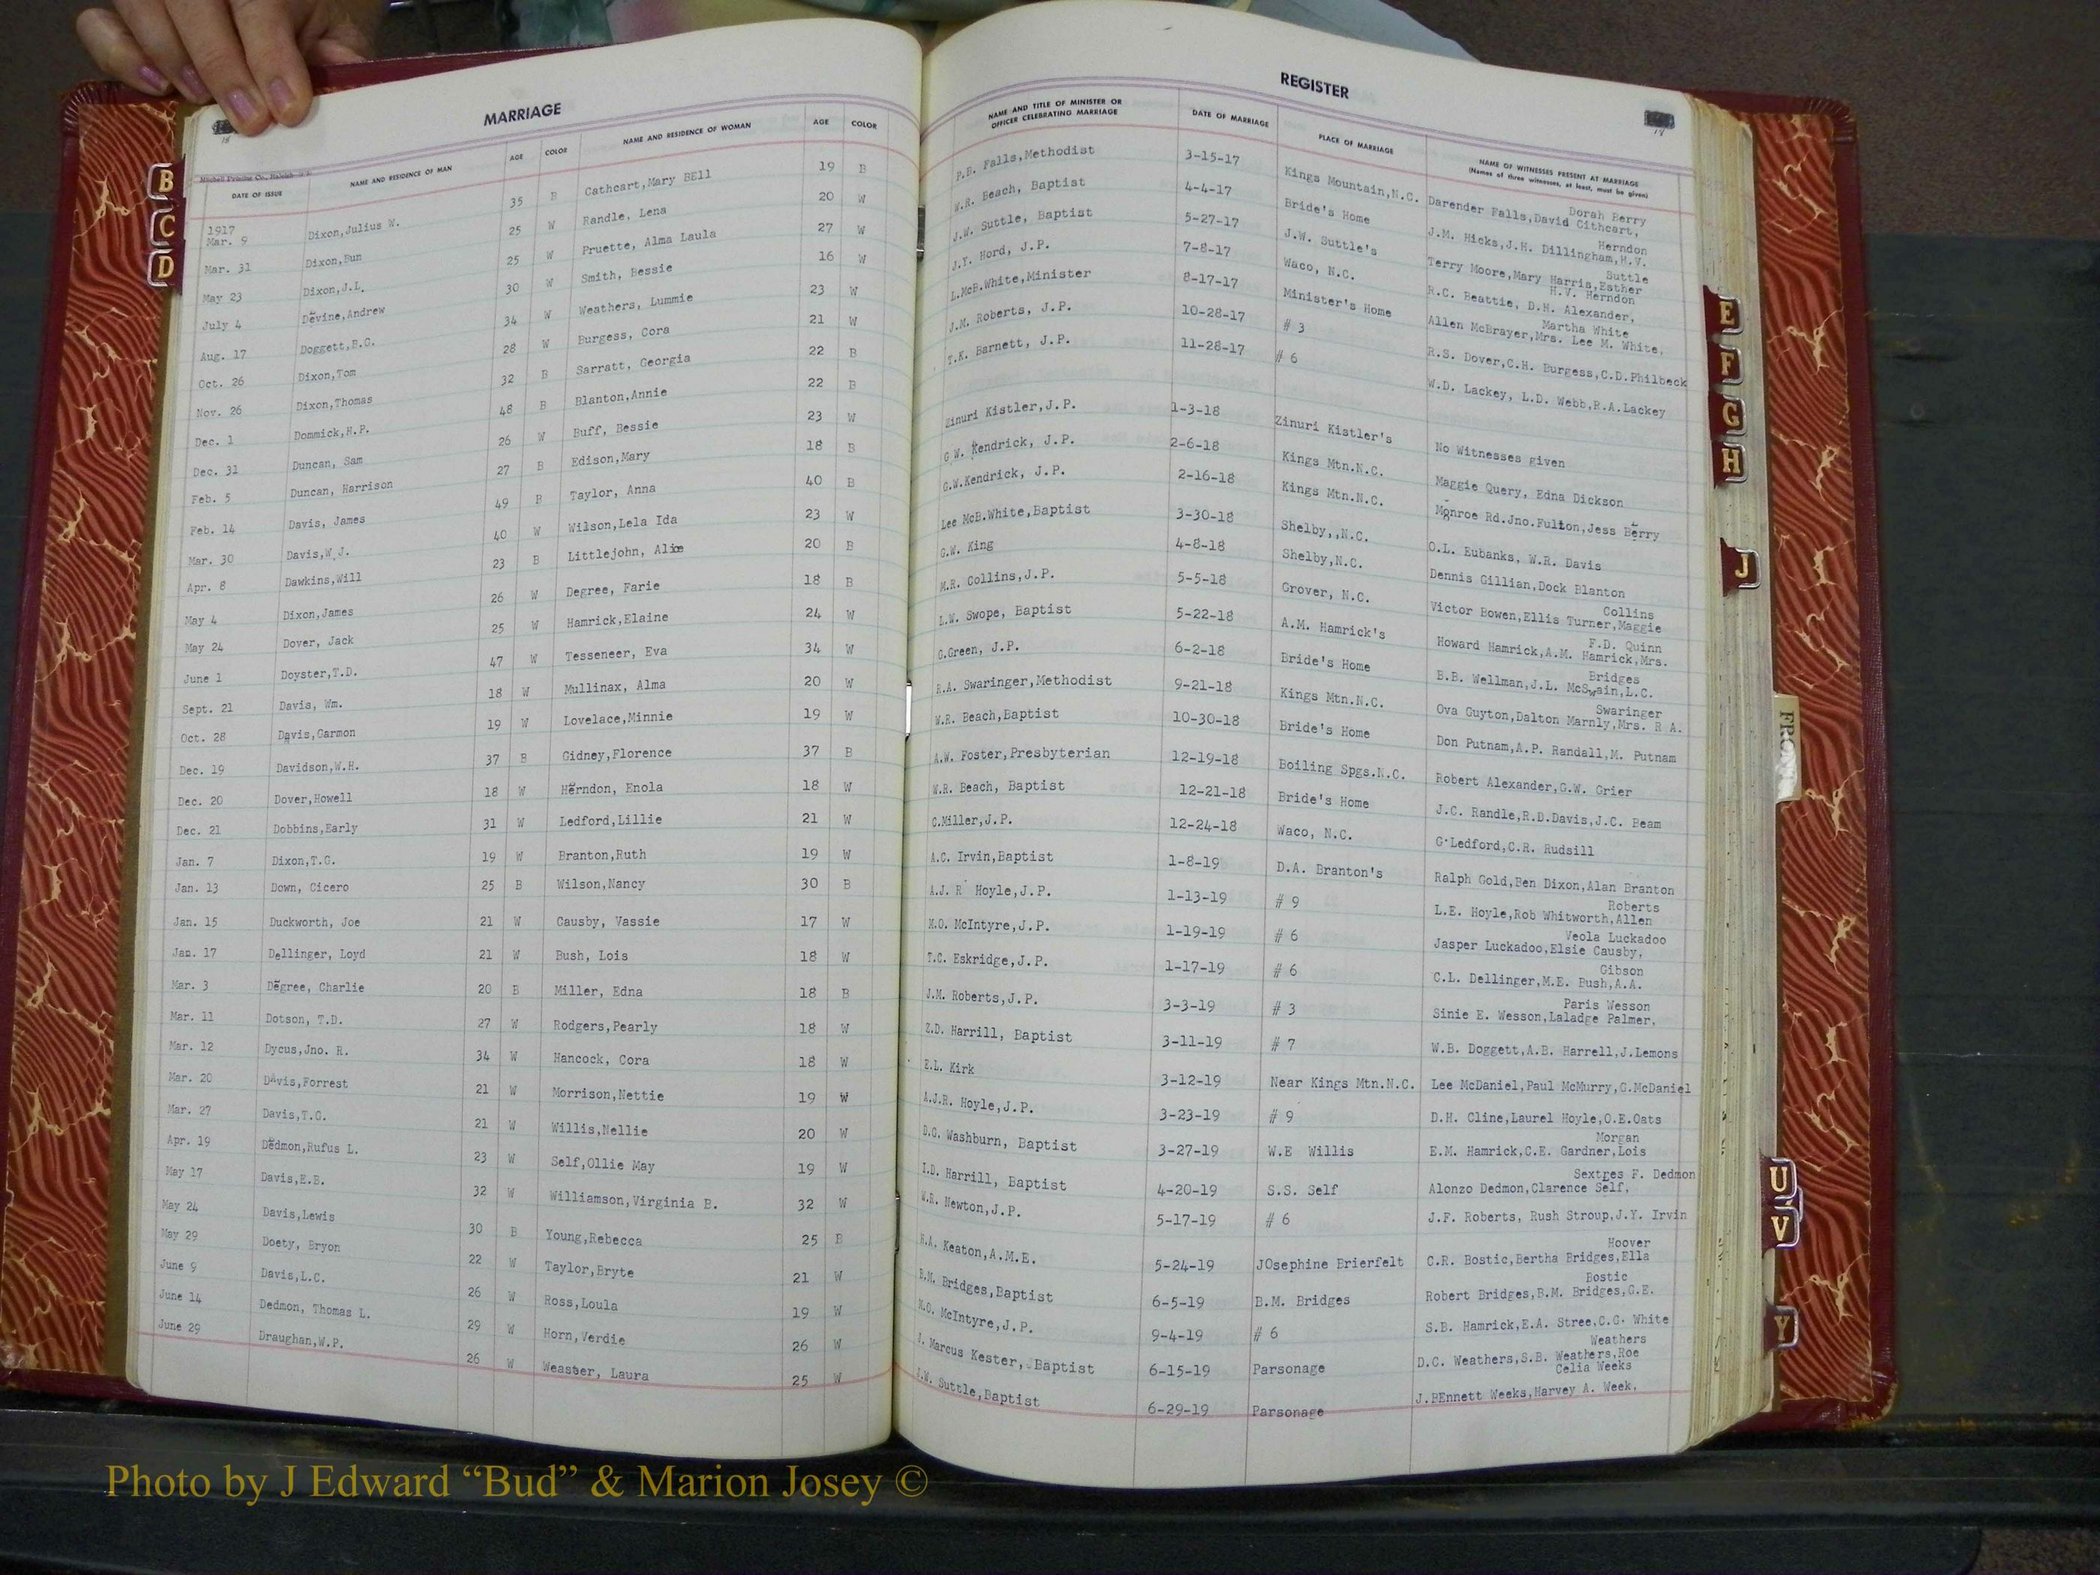 MARRIAGE
18
Mitchell Printing Co., Raleigh
DATE OF ISSUE NAME AND RESIDENCE OF MAN AGE COLOR NAME AND RESIDENCE OF WOMAN AGE COLOR
1917
Mar. 9 Dixon,Julius W. 35 B Cathcart,Mary BEll 19 B
Mar. 31 Dixon,Bun 25 W Randle, Lena 20 W
May 23 Dixon,J.L. 25 W Pruette, Alma Laula 27 W
July 4 Devine,Andrew 30 W Smith, Bessie 16 W
Aug. 17 Doggett,B.G. 34 W Weathers, Lummie 23 W
Oct. 26 Dixon,Tom 28 W Burgess, Cora 21 W
Nov. 26 Dixon,Thomas 32 B Sarratt, Georgia 22 B
Dec. 1 Dommick,H.P. 48 B Blanton,Annie 22 B
Dec. 31 Duncan, Sam 26 W Buff, Bessie 23 W
Feb. 5 Duncan, Harrison 27 B Edison,Mary 18 B
Feb. 14 Davis, James 49 B Taylor, Anna 40 B
Mar. 30 Davis,W.J. 40 W Wilson,Lela Ida 23 W
Apr. 8 Dawkins,Will 23 B Littlejohn, Alice 20 B
May 4 Dixon,James 26 W Degree, Farie 18 B
May 24 Dover, Jack 25 W Hamrick,Elaine 24 W
June 1 Doyster,T.D. 47 W Tesseneer, Eva 34 W
Sept. 21 Davis, Wm. 18 W Mullinax, Alma 20 W
Oct. 28 Davis,Garmon 19 W Lovelace,Minnie 19 W
Dec. 19 Davidson,W.H. 37 B Gidney,Florence 37 B
Dec. 20 Dover,Howell 18 W Herndon, Enola 18 W
Dec. 21 Dobbins,Early 31 W Ledford,Lillie 21 W
Jan. 7 Dixon,T.G. 19 W Branton,Ruth 19 W
Jan. 13 Down, Cicero 25 B Wilson,Nancy 30 B
Jan. 15 Duckworth, Joe 21 W Causby, Vassie 17 W
Jan. 17 Dellinger, Loyd 21 W Bush, Lois 18 W
Mar. 3 Degree, Charlie 20 B Miller, Edna 18 B
Mar. 11 Dotson, T.D. 27 W Rodgers,Pearly 18 W
Mar. 12 Dycus,Jno. R. 34 W Hancock, Cora 18 W
Mar. 20 Davis,Forrest 21 W Morrison,Nettie 19 W
Mar. 27 Davis,T.G. 21 W Willis,Nellie 20 W
Apr. 19 Dedmon,Rufus L. 23 W Self,Ollie May 19 W
May 17 Davis,E.B. 32 W Williamson,Virginia B. 32 W
May 24 Davis,Lewis 30 B Young,Rebecca 25 B
May 29 Doety, Bryon 22 W Taylor,Bryte 21 W
June 9 Davis,L.C. 26 W Ross,Loula 19 W
June 14 Dedmon, Thomas L. 29 W Horn,Verdie 26 W
June 29 Draughan,W.P. 26 W Weasser, Laura 25 W
REGISTER
18
NAME AND TITLE OF MINISTER OR OFFICER CELEBRATING MARRIAGE DATE OF MARRIAGE PLACE OF MARRIAGE NAME OF WITNESSES PRESENT AT MARRIAGE
(Names of three witnesses, at least, must be given)
Dorah Berry
P.B. Falls,Methodist 3-15-17 Kings Mountain,N.C. Darender Falls,David Cithcart,
Herndon
W.R. Beach, Baptist 4-4-17 Bride's Home J.M. Hicks,J.H. Dillingham,H.V.
Suttle
J.W. Suttle, Baptist 5-27-17 J.W. Suttle's Terry Moore,Mary Harris,Esther
H.V. Herndon
J.Y. Hord, J.P. 7-8-17 Waco, N.C. R.C. Beattie, D.H. Alexander,
Martha White
L.McB.White,Minister 8-17-17 Minister's Home Allen McBrayer,Mrs. Lee M. White,
J.M. Roberts, J.P. 10-28-17 # 3 R.S. Dover,C.H. Burgess,C.D.Philbeck
T.K. Barnett, J.P. 11-28-17 # 6 W.D. Lackey, L.D. Webb,R.A.Lackey
Zinuri Kistler,J.P. 1-3-18 Zinuri Kistler's No Witnesses given
G.W. Kendrick, J.P. 2-6-18 Kings Mtn.N.C. Maggie Query, Edna Dickson
G.W.Kendrick, J.P. 2-16-18 Kings Mtn.N.C. Monroe Rd.Jno.Fulton,Jess Berry
Lee McB.White,Baptist 3-30-18 Shelby,,N.C. O.L. Eubanks, W.R. Davis
G.W. King 4-8-18 Shelby,N.C. Dennis Gillian,Dock Blanton
Collins
M.R. Collins,J.P. 5-5-18 Grover, N.C. Victor Bowen,Ellis Turner,Maggie
F.D. Quinn
L.W. Swope, Baptist 5-22-18 A.M. Hamrick's Howard Hamrick,A.M. Hamrick,Mrs.
Bridges
O.Green, J.P. 6-2-18 Bride's Home B.B. Wellman,J.L. McSwain,L.C.
Swaringer
R.A. Swaringer,Methodist 9-21-18 Kings Mtn.N.C. Ova Guyton,Dalton Marnly,Mrs. R A.
W.R. Beach,Baptist 10-30-18 Bride's Home Don Putnam,A.P. Randall,M. Putnam
A.W. Foster,Presbyterian 12-19-18 Boiling Spgs.N.C. Robert Alexander,G.W. Grier
W.R. Beach, Baptist 12-21-18 Bride's Home J.C. Randle,R.D.Davis,J.C. Beam
C.Miller,J.P. 12-24-18 Waco, N.C. G.Ledford,C.R. Rudsill
A.C. Irvin,Baptist 1-8-19 D.A. Branton's Ralph Gold,Ben Dixon,Alan Branton
Roberts
A.J. R Hoyle,J.P. 1-13-19 # 9 L.E. Hoyle,Rob Whitworth,Allen
Veola Luckadoo
M.O. McIntyre,J.P. 1-19-19 # 6 Jasper Luckadoo,Elsie Causby,
Gibson
T.C. Eskridge,J.P. 1-17-19 # 6 C.L. Dellinger,M.E. Bush,A.A.
Paris Wesson
J.M. Roberts,J.P. 3-3-19 # 3 Sinie E. Wesson,Laladge Palmer,
Z.D. Harrill, Baptist 3-11-19 # 7 W.B. Doggett,A.B. Harrell,J.Lemons
E.L. Kirk 3-12-19 Near Kings Mtn.N.C. Lee McDaniel,Paul McMurry,G.McDaniel
A.J.R. Hoyle,J.P. 3-23-19 # 9 D.H. Cline,Laurel Hoyle,O.E.Oats
Morgan
D.G. Washburn, Baptist 3-27-19 W.E Willis E.M. Hamrick,C.E. Gardner,Lois
Sextres F. Dedmon
I.D. Harrill, Baptist 4-20-19 S.S. Self Alonzo Dedmon,Clarence Self,
W.R. Newton,J.P. 5-17-19 # 6 J.F. Roberts, Rush Stroup,J.Y. Irvin
Hoover
R.A. Keaton,A.M.E. 5-24-19 JOsephine Brierfelt C.R. Bostic,Bertha Bridges,Ella
Bostic
B.M. Bridges,Baptist 6-5-19 B.M. Bridges Robert Bridges,B.M. Bridges,G.E.
M.O. McIntyre,J.P. 9-4-19 # 6 S.B. Hamrick,E.A. Stree,C.G. White
Weathers
J. Marcus Kester, Baptist 6-15-19 Parsonage D.C. Weathers,S.B. Weathers,Roe
Celia Weeks
J.W. Suttle,Baptist 6-29-19 Parsonage J.BEnnett Weeks,Harvey A. Week,
B
C
D
E
F
G
H
J
FRONT
U
V
Y
Photo by J Edward “Bud” & Marion Josey ©